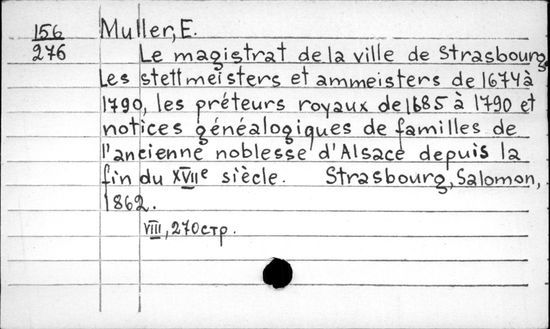 156 Muller, E.
276 Le magistrat de la ville de Strasbourg
Les stettmeisters et ammeisters de 1674 à
1790, les préteurs royaux de 1685 à 1790 et
notices généalogiques de familles de
l'ancienne noblesse d'Alsace depuis la
fin du XVIIe siècle. Strasbourg, Salomon,
1862.
VIII, 270 стр.